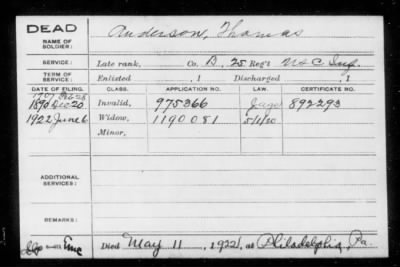 DEAD
NAME OF SOLDIER:
Anderson, Thomas
SERVICE:
Late rank, Co. D, 25 Reg't U S C Inf.
TERM OF SERVICE:
Enlisted , 1 Discharged , 1
DATE OF FILING. CLASS. APPLICATION NO. LAW. CERTIFICATE NO.
1890 Dec 20 Invalid, 975366 892293
1922 June 6 Widow, 1190081 5/1/20
Minor,
ADDITIONAL SERVICES:
REMARKS:
Died May 11, 1922, at Philadelphia, Pa.